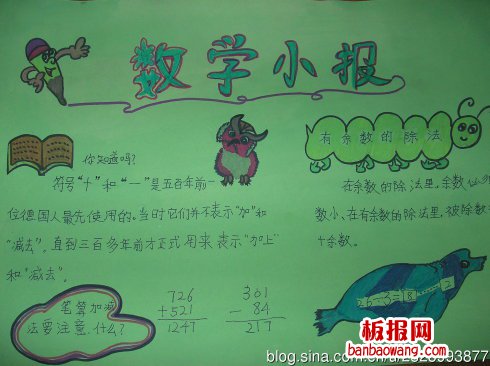 数学小报
你知道吗?
符号"十"和"一"是五百年前一
位德国人最先使用的。当时它们并不表示"加"和
"减去"。直到三百多年前才正式用来表示"加上"
和"减去"。
有余数的除法
在余数的除法里,余数
数小、在有余数的除法里,被除数
十余数。
笔算加减
法要注意什么?
726
+521
1247
301
- 84
217
板报网
banbaowang.com
blog.sina.com.cn